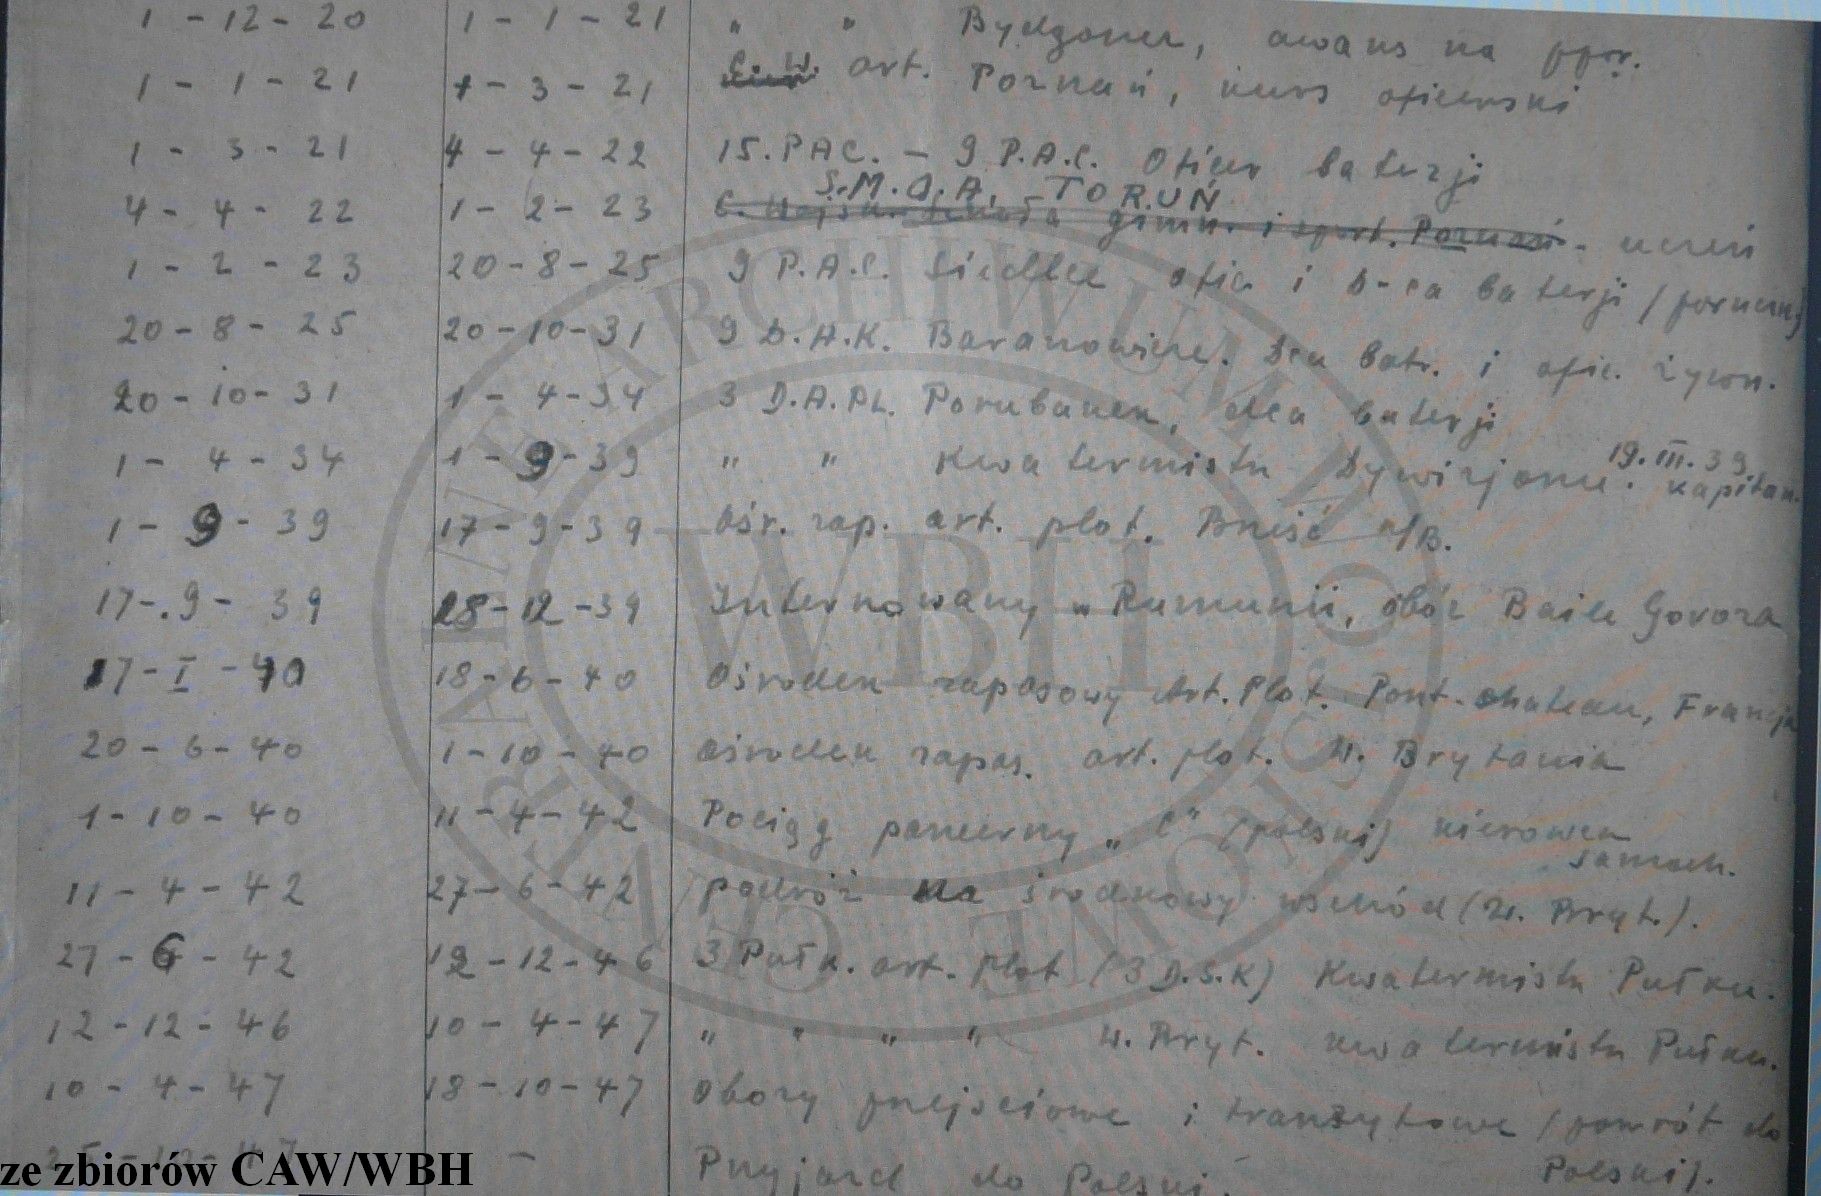 1 - 12 - 20 1 - 1 - 21 " " Bydgoszcz, awans na ppor.
1 - 1 - 21 1 - 3 - 21 C. W. art. Poznań, kurs oficerski
1 - 3 - 21 4 - 4 - 22 15. PAC. - 9 P.A.C. Oficer baterji
S.M.O.A. - TORUŃ
4 - 4 - 22 1 - 2 - 23 C. Wojsk. Szkoła gimn. i sport. Poznań. uczeń
1 - 2 - 23 20 - 8 - 25 9 P.A.C. Siedlce ofic. i D-ca baterji (porucz.)
20 - 8 - 25 20 - 10 - 31 9 D.A.K. Baranowicze. Dca bat. i ofic. żywn.
20 - 10 - 31 1 - 4 - 34 3 D.A.PL. Porubanek, dca baterji
1 - 4 - 34 1 - 9 - 39 " " Kwatermistrz Dywizjonu. 19.III.39. kapitan.
1 - 9 - 39 17 - 9 - 39 Ośr. zap. art. plot. Brześć n/B.
17 - 9 - 39 28 - 12 - 39 Internowany w Rumunii, obóz Baile Govora
17 - I - 40 18 - 6 - 40 Ośrodek zapasowy Art. Plot. Pont-chateau, Francja
20 - 6 - 40 1 - 10 - 40 Ośrodek zapas. art. plot. W. Brytania
1 - 10 - 40 11 - 4 - 42 Pociąg pancerny „C" (polski) kierowca
samoch.
11 - 4 - 42 27 - 6 - 42 podróż na środkowy wschód (W. Bryt.).
27 - 6 - 42 12 - 12 - 46 3 Pułk. art. plot (3 D.S.K) Kwatermistrz Pułku.
12 - 12 - 46 10 - 4 - 47 " " " " W. Bryt. kwatermistrz Pułku.
10 - 4 - 47 18 - 10 - 47 Obozy przejściowe i tranzytowe (powrót do
Polski).
- Przyjazd do Polski.
ze zbiorów CAW/WBH
CENTRALNE ARCHIWUM WOJSKOWE
WBH